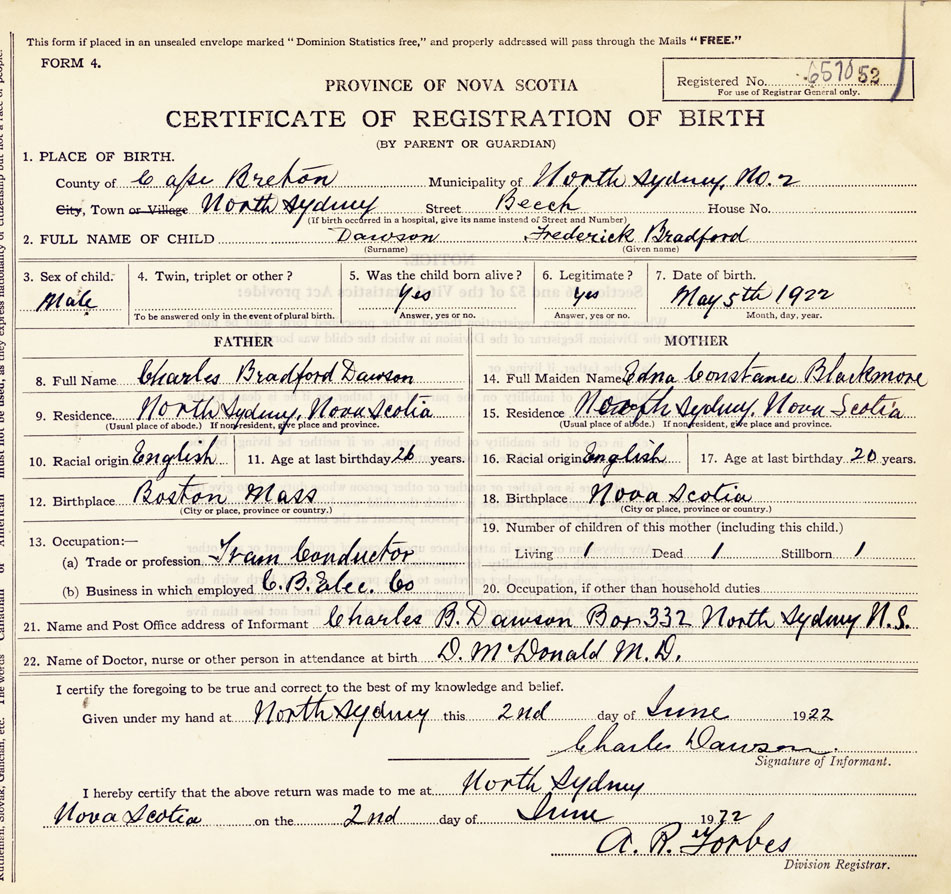 This form if placed in an unsealed envelope marked "Dominion Statistics free," and properly addressed will pass through the Mails "FREE."
FORM 4.
Registered No. 657052
For use of Registrar General only.
PROVINCE OF NOVA SCOTIA
CERTIFICATE OF REGISTRATION OF BIRTH
(BY PARENT OR GUARDIAN)
1. PLACE OF BIRTH.
County of Cape Breton Municipality of North Sydney, No. 2
City, Town or Village North Sydney Street Beech House No.
(If birth occurred in a hospital, give its name instead of Street and Number)
2. FULL NAME OF CHILD Dawson Frederick Bradford
(Surname) (Given name)
3. Sex of child. 4. Twin, triplet or other? 5. Was the child born alive? 6. Legitimate? 7. Date of birth.
Male Yes yes May 5th 1922
To be answered only in the event of plural birth. Answer, yes or no. Answer, yes or no. Month, day, year.
FATHER MOTHER
8. Full Name Charles Bradford Dawson 14. Full Maiden Name Edna Constance Blackmore
9. Residence North Sydney, Nova Scotia 15. Residence North Sydney, Nova Scotia
(Usual place of abode.) If nonresident, give place and province. (Usual place of abode.) If nonresident, give place and province.
10. Racial origin English 11. Age at last birthday 26 years. 16. Racial origin English 17. Age at last birthday 20 years.
12. Birthplace Boston Mass 18. Birthplace Nova Scotia
(City or place, province or country.) (City or place, province or country.)
13. Occupation:— 19. Number of children of this mother (including this child.)
(a) Trade or profession Tram Conductor Living 1 Dead 1 Stillborn 1
(b) Business in which employed C. B. Elec. Co 20. Occupation, if other than household duties
21. Name and Post Office address of Informant Charles B. Dawson Box 332 North Sydney N.S.
22. Name of Doctor, nurse or other person in attendance at birth D. McDonald M.D.
I certify the foregoing to be true and correct to the best of my knowledge and belief.
Given under my hand at North Sydney this 2nd day of June 1922
Charles Dawson.
Signature of Informant.
I hereby certify that the above return was made to me at North Sydney
Nova Scotia on the 2nd day of June 1922
A. R. Forbes
Division Registrar.